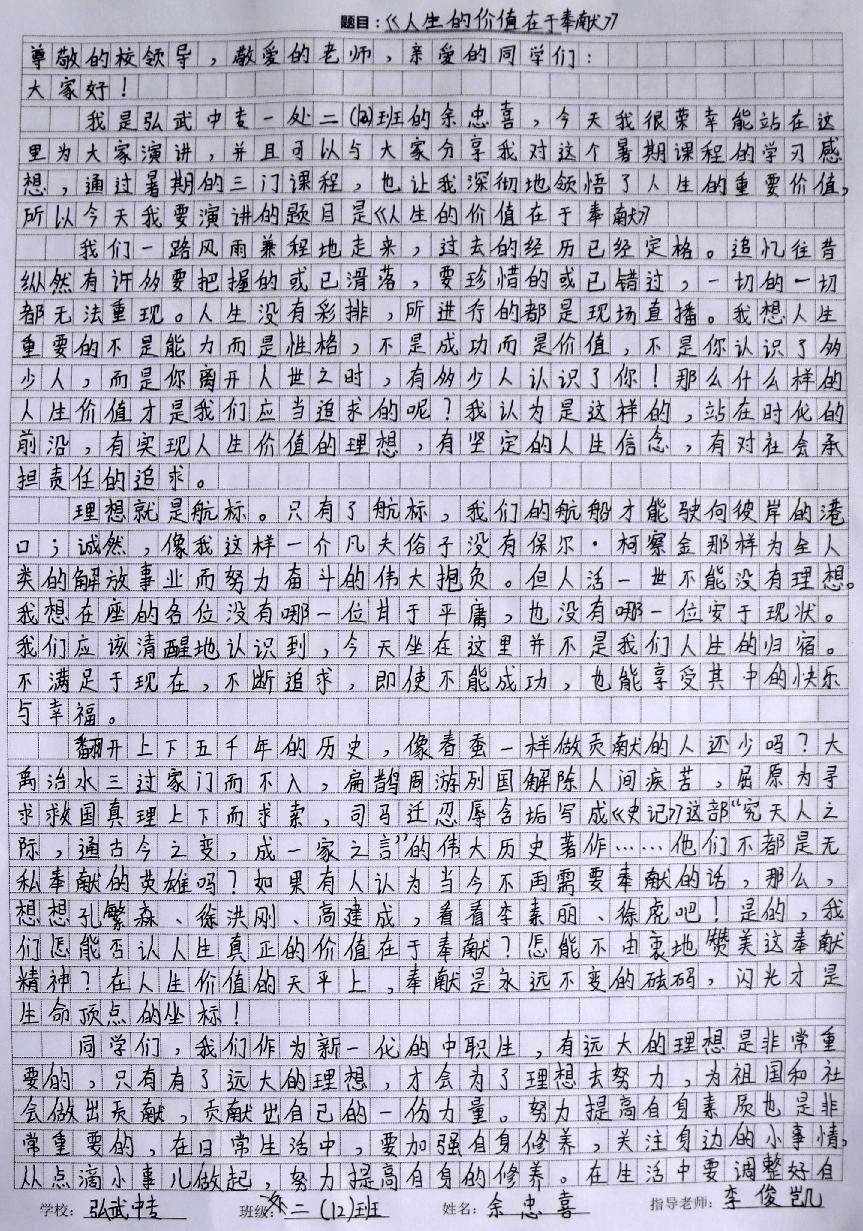 题目：《人生的价值在于奉献》
尊敬的校领导，敬爱的老师，亲爱的同学们：
大家好！
我是弘武中专一处二(12)班的余忠喜，今天我很荣幸能站在这
里为大家演讲，并且可以与大家分享我对这个暑期课程的学习感
想，通过暑期的三门课程，也让我深彻地领悟了人生的重要价值，
所以今天我要演讲的题目是《人生的价值在于奉献》
我们一路风雨兼程地走来，过去的经历已经定格。追忆往昔
纵然有许多要把握的或已滑落，要珍惜的或已错过，一切的一切
都无法重现。人生没有彩排，所进行的都是现场直播。我想人生
重要的不是能力而是性格，不是成功而是价值，不是你认识了多
少人，而是你离开人世之时，有多少人认识了你！那么什么样的
人生价值才是我们应当追求的呢？我认为是这样的，站在时代的
前沿，有实现人生价值的理想，有坚定的人生信念，有对社会承
担责任的追求。
理想就是航标。只有了航标，我们的航船才能驶向彼岸的港
口；诚然，像我这样一介凡夫俗子没有保尔·柯察金那样为全人
类的解放事业而努力奋斗的伟大抱负。但人活一世不能没有理想。
我想在座的各位没有哪一位甘于平庸，也没有哪一位安于现状。
我们应该清醒地认识到，今天坐在这里并不是我们人生的归宿。
不满足于现在，不断追求，即使不能成功，也能享受其中的快乐
与幸福。
翻开上下五千年的历史，像春蚕一样做贡献的人还少吗？大
禹治水三过家门而不入，扁鹊周游列国解除人间疾苦，屈原为寻
求救国真理上下而求索，司马迁忍辱含垢写成《史记》这部“究天人之
际，通古今之变，成一家之言”的伟大历史著作……他们不都是无
私奉献的英雄吗？如果有人认为当今不再需要奉献的话，那么，
想想孔繁森、徐洪刚、高建成，看看李素丽、徐虎吧！是的，我
们怎能否认人生真正的价值在于奉献？怎能不由衷地赞美这奉献
精神？在人生价值的天平上，奉献是永远不变的砝码，闪光才是
生命顶点的坐标！
同学们，我们作为新一代的中职生，有远大的理想是非常重
要的，只有有了远大的理想，才会为了理想去努力，为祖国和社
会做出贡献，贡献出自己的一份力量。努力提高自身素质也是非
常重要的，在日常生活中，要加强自身修养，关注身边的小事情，
从点滴小事儿做起，努力提高自身的修养。在生活中要调整好自
学校：弘武中专 班级：二(12)班 姓名：余忠喜 指导老师：李俊凯